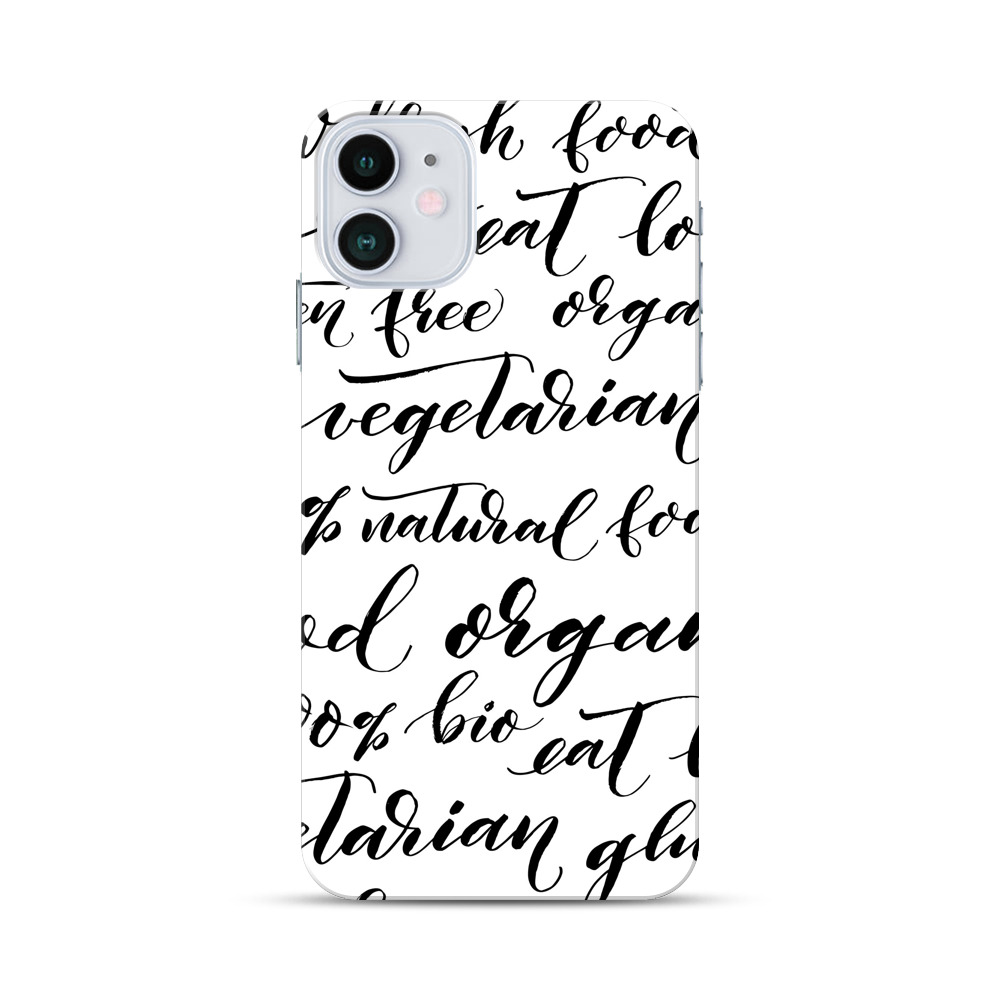 food
eat lo
en free orga
vegetarian
% natural foo
od organ
00% bio eat l
etarian glu